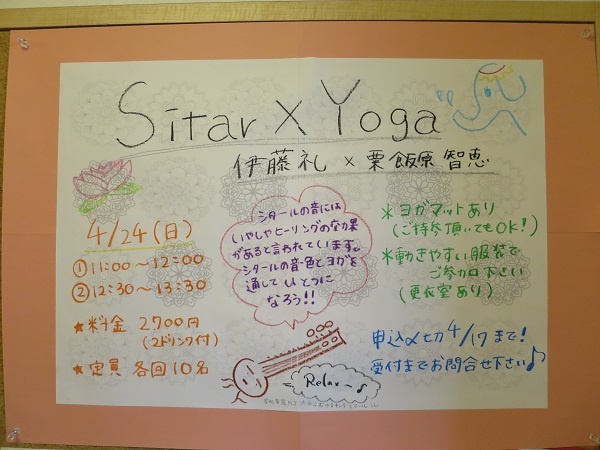 Sitar × Yoga
伊藤礼 × 粟飯原 智恵
4/24(日)
①11:00〜12:00
②12:30〜13:30
★料金 2700円
(2ドリンク付)
★定員 各回10名
シタールの音には
いやしやヒーリングの効果
があると言われています。
シタールの音色とヨガを
通してひとつに
なろう!!
＊ヨガマットあり
(ご持参頂いてもOK!)
＊動きやすい服装で
ご参加下さい
(更衣室あり)
申込〆切4/17まで!
受付までお問合せ下さい♪
Relax〜♪